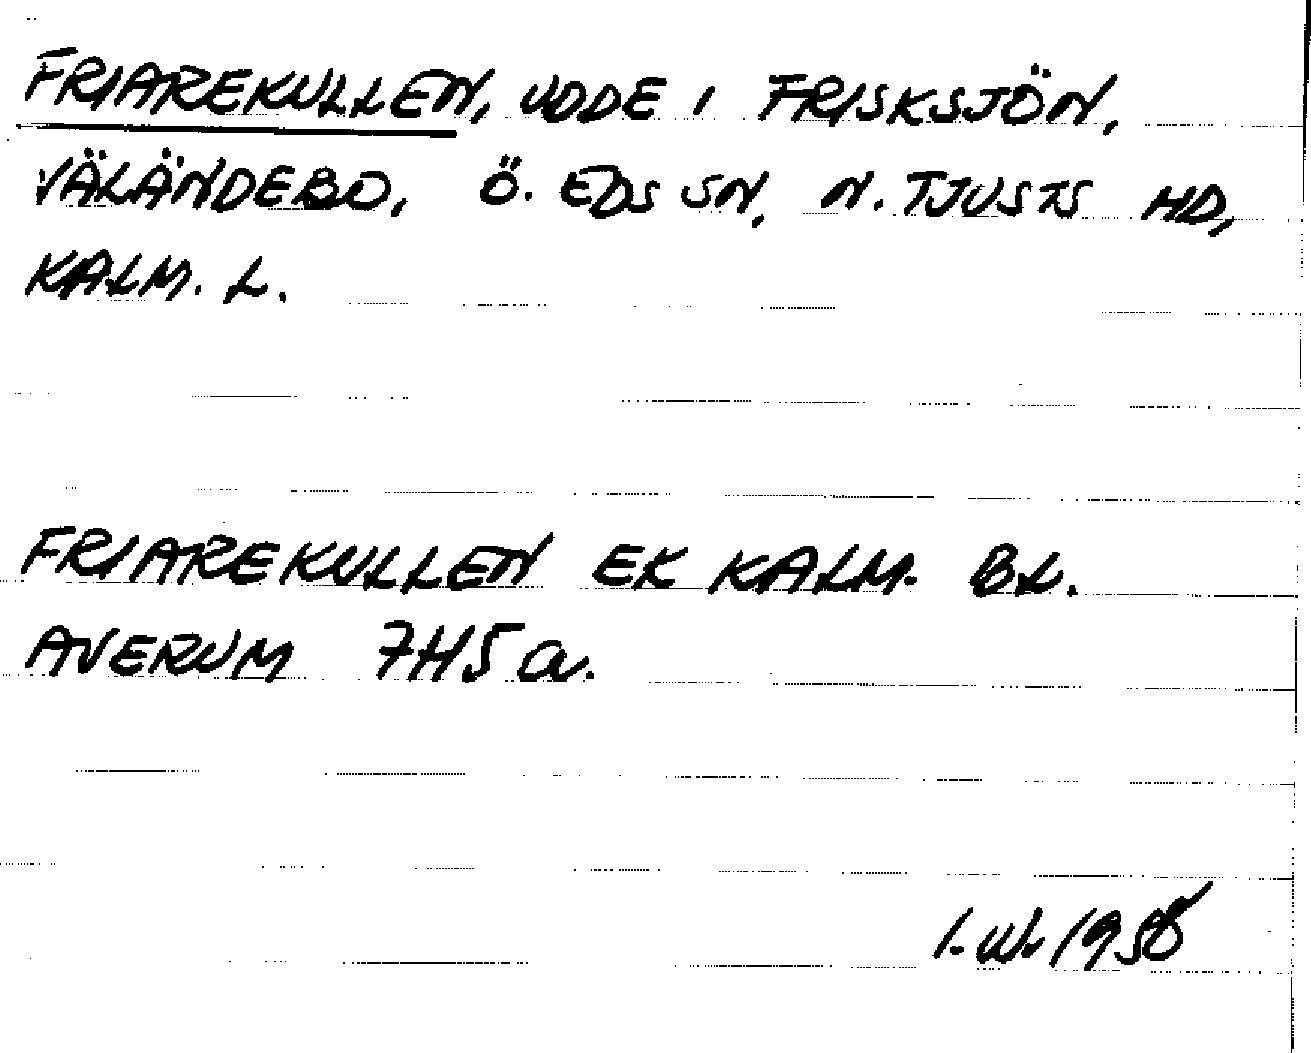 FRIAREKULLEN, UDDE I FRISKSJÖN,
VÄLÄNDEBO, Ö. EDS SN, N. TJUSTS HD,
KALM. L.
FRIAREKULLEN EK KALM. BL.
AVERUM 7H5a.
I. W. 1958